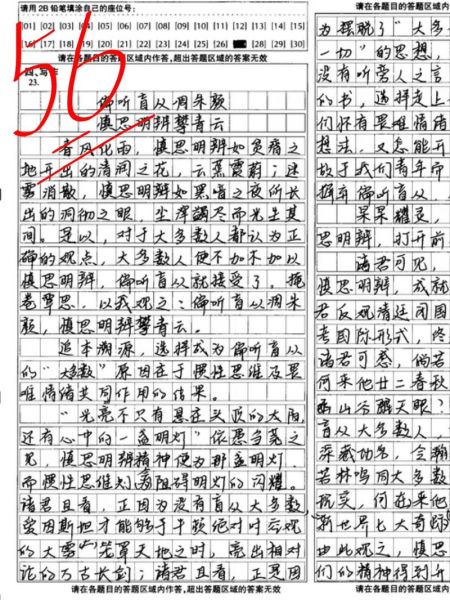 请用2B铅笔填涂自己的座位号:
[01] [02] [03] [04] [05] [06] [07] [08] [09] [10] [11] [12] [13] [14] [15]
[16] [17] [18] [19] [20] [21] [22] [23] [24] [25] [26] [28] [29] [30]
请在各题目的答题区域内作答,超出答题区域的答案无效
56
四、写作
23.
偏听盲从凋朱颜
慎思明辨攀青云
春风化雨,慎思明辨如贫瘠之
地开出的清润之花,云蒸霞蔚;迷
雾消散,慎思明辨如黑暗之夜所长
出的洞彻之眼,尘滓涤尽而光生其
间。是以,对于大多数人都认为正
确的观点,大多数人便不加不加以
慎思明辨,偏听盲从就接受了。掩
卷覃思,以我观之:偏听盲从凋朱
颜,慎思明辨攀青云。
追本溯源,选择成为偏听盲从
的“大多数”原因在于惯性思维及畏
难情绪共同作用的结果。
“光亮不只有悬在头顶的太阳,
还有心中的一盏明灯”依愚当菟之
见,慎思明辨精神便为那盏明灯,
而惯性思维则为阻碍明灯的闪耀。
诸君且看,正因为没有盲从大多数,
爱因斯坦才能够于牛顿绝对时空观
的大雪笼罩天地之时,亮出相对
论的万古长剑;诸君且看,正是因
请在各题目的答题区域内作答,超出答题区域的答案无效
请在各题目的答题区域内
为摆脱了“大多
一切”的思想,
没有听旁人之言
的书,选择走上
们怀有畏难情绪
想法,又怎能开
故于我们青年而
摒弃偏听盲从,
杲杲耀灵,
思明辨,打开前
诸君可见,
慎思明辨,成就
君反观清廷闭国
考国际形式,终
诸君可感,倘若
何来他廿二春秋
盲从大多数人,
深藏功名,令翰
若林鸣岗大多数
玩笑,何在来他
“新世界七大奇迹
由此观之,慎思
们的精神得到升
请在各题目的答题区域内